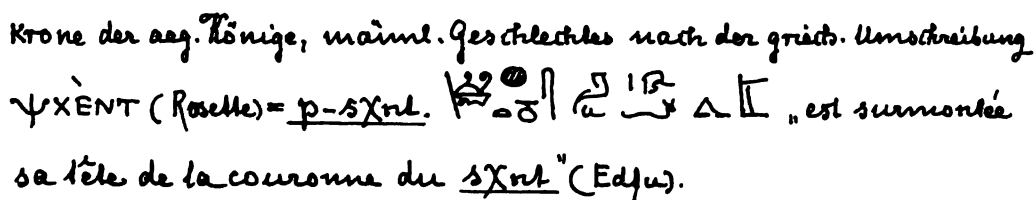 Krone der aeg. Könige, männl. Geschlechtes nach der griech. Umschreibung
ΨΧÈΝΤ (Rosette) = p-sχnt. „est surmontée
sa tête de la couronne du sχnt" (Edfu).